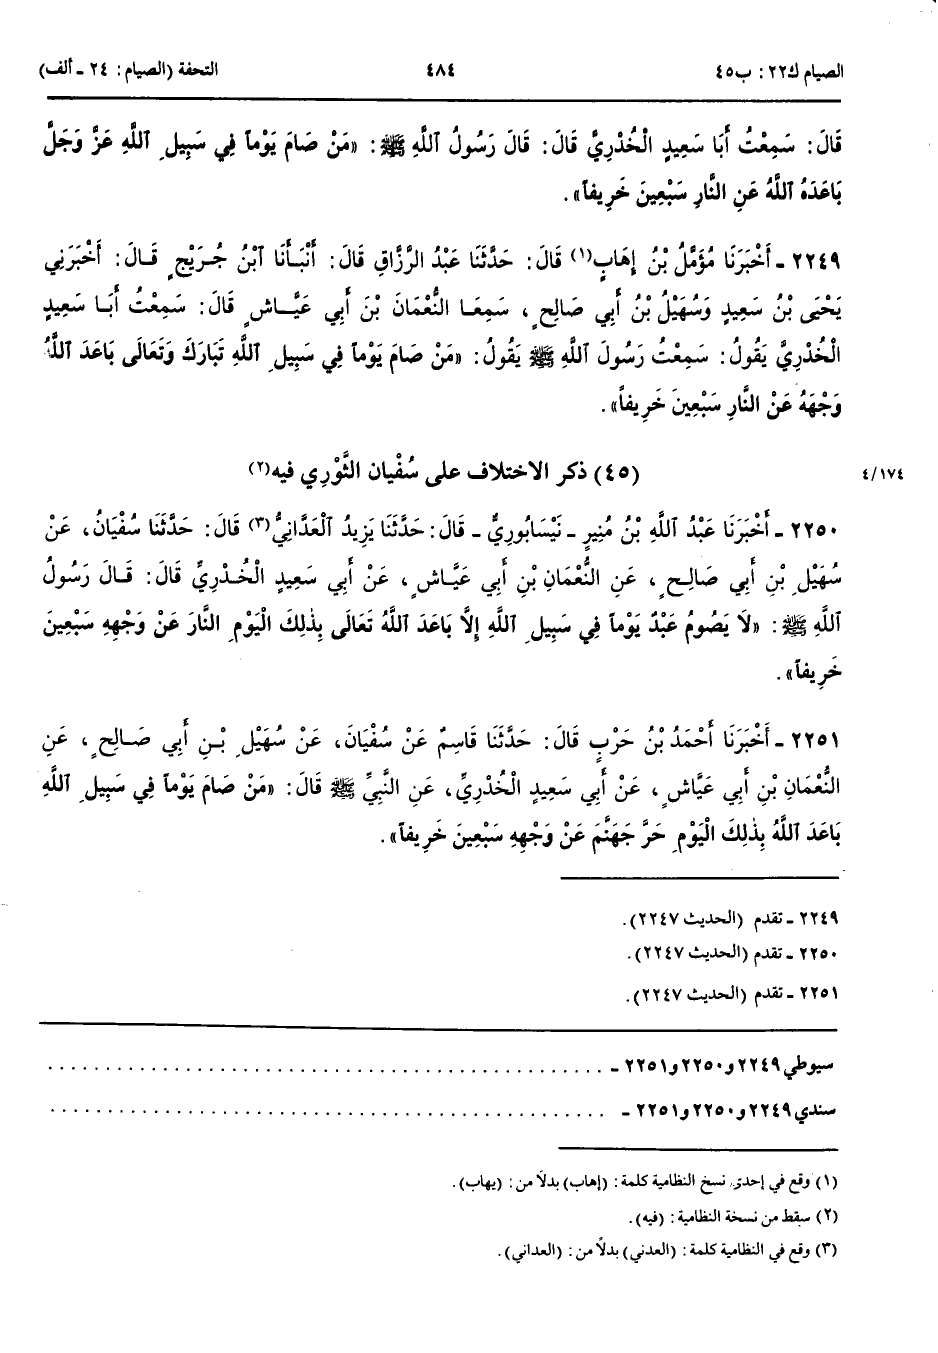 الصيام ك٢٢: ب٤٥ ٤٨٤ التحفة (الصيام: ٢٤ ـ ألف)
قَالَ: سَمِعْتُ أَبَا سَعِيدٍ الْخُدْرِيَّ قَالَ: قَالَ رَسُولُ ٱللَّهِ ﷺ: «مَنْ صَامَ يَوْماً فِي سَبِيلِ ٱللَّهِ عَزَّ وَجَلَّ
بَاعَدَهُ ٱللَّهُ عَنِ النَّارِ سَبْعِينَ خَرِيفاً».
٢٢٤٩ ـ أَخْبَرَنَا مُؤَمَّلُ بْنُ إِهَابٍ(١) قَالَ: حَدَّثَنَا عَبْدُ الرَّزَّاقِ قَالَ: أَنْبَأَنَا ٱبْنُ جُرَيْجٍ قَالَ: أَخْبَرَنِي
يَحْيَى بْنُ سَعِيدٍ وَسُهَيْلُ بْنُ أَبِي صَالِحٍ، سَمِعَا النُّعْمَانَ بْنَ أَبِي عَيَّاشٍ قَالَ: سَمِعْتُ أَبَا سَعِيدٍ
الْخُدْرِيَّ يَقُولُ: سَمِعْتُ رَسُولَ ٱللَّهِ ﷺ يَقُولُ: «مَنْ صَامَ يَوْماً فِي سَبِيلِ ٱللَّهِ تَبَارَكَ وَتَعَالَى بَاعَدَ ٱللَّهُ
وَجْهَهُ عَنْ النَّارِ سَبْعِينَ خَرِيفاً».
(٤٥) ذكر الاختلاف على سُفْيان الثَّوْرِي فيه(٢)
٤/١٧٤
٢٢٥٠ ـ أَخْبَرَنَا عَبْدُ ٱللَّهِ بْنُ مُنِيرٍ ـ نَيْسَابُورِيٌّ ـ قَالَ: حَدَّثَنَا يَزِيدُ الْعَدَّانِيُّ(٣) قَالَ: حَدَّثَنَا سُفْيَانُ، عَنْ
سُهَيْلِ بْنِ أَبِي صَالِحٍ، عَنِ النُّعْمَانِ بْنِ أَبِي عَيَّاشٍ، عَنْ أَبِي سَعِيدٍ الْخُدْرِيِّ قَالَ: قَالَ رَسُولُ
ٱللَّهِ ﷺ: «لَا يَصُومُ عَبْدٌ يَوْماً فِي سَبِيلِ ٱللَّهِ إِلَّا بَاعَدَ ٱللَّهُ تَعَالَى بِذٰلِكَ الْيَوْمِ النَّارَ عَنْ وَجْهِهِ سَبْعِينَ
خَرِيفاً».
٢٢٥١ ـ أَخْبَرَنَا أَحْمَدُ بْنُ حَرْبٍ قَالَ: حَدَّثَنَا قَاسِمٌ عَنْ سُفْيَانَ، عَنْ سُهَيْلِ بْنِ أَبِي صَالِحٍ، عَنِ
النُّعْمَانِ بْنِ أَبِي عَيَّاشٍ، عَنْ أَبِي سَعِيدٍ الْخُدْرِيِّ، عَنِ النَّبِيِّ ﷺ قَالَ: «مَنْ صَامَ يَوْماً فِي سَبِيلِ ٱللَّهِ
بَاعَدَ ٱللَّهُ بِذٰلِكَ الْيَوْمِ حَرَّ جَهَنَّمَ عَنْ وَجْهِهِ سَبْعِينَ خَرِيفاً».
٢٢٤٩ ـ تقدم (الحديث ٢٢٤٧).
٢٢٥٠ ـ تقدم (الحديث ٢٢٤٧).
٢٢٥١ ـ تقدم (الحديث ٢٢٤٧).
سيوطي ٢٢٤٩ و٢٢٥٠ و٢٢٥١ ـ . . . . . . . . . . . . . . . . . . . . . . . . . . . . . . . . . . . . . . . .
سندي ٢٢٤٩ و٢٢٥٠ و٢٢٥١ ـ . . . . . . . . . . . . . . . . . . . . . . . . . . . . . . . . . . . . . . . .
(١) وقع في إحدى نسخ النظامية كلمة: (إهاب) بدلًا من: (يهاب).
(٢) سقط من نسخة النظامية: (فيه).
(٣) وقع في النظامية كلمة: (العدني) بدلًا من: (العداني).